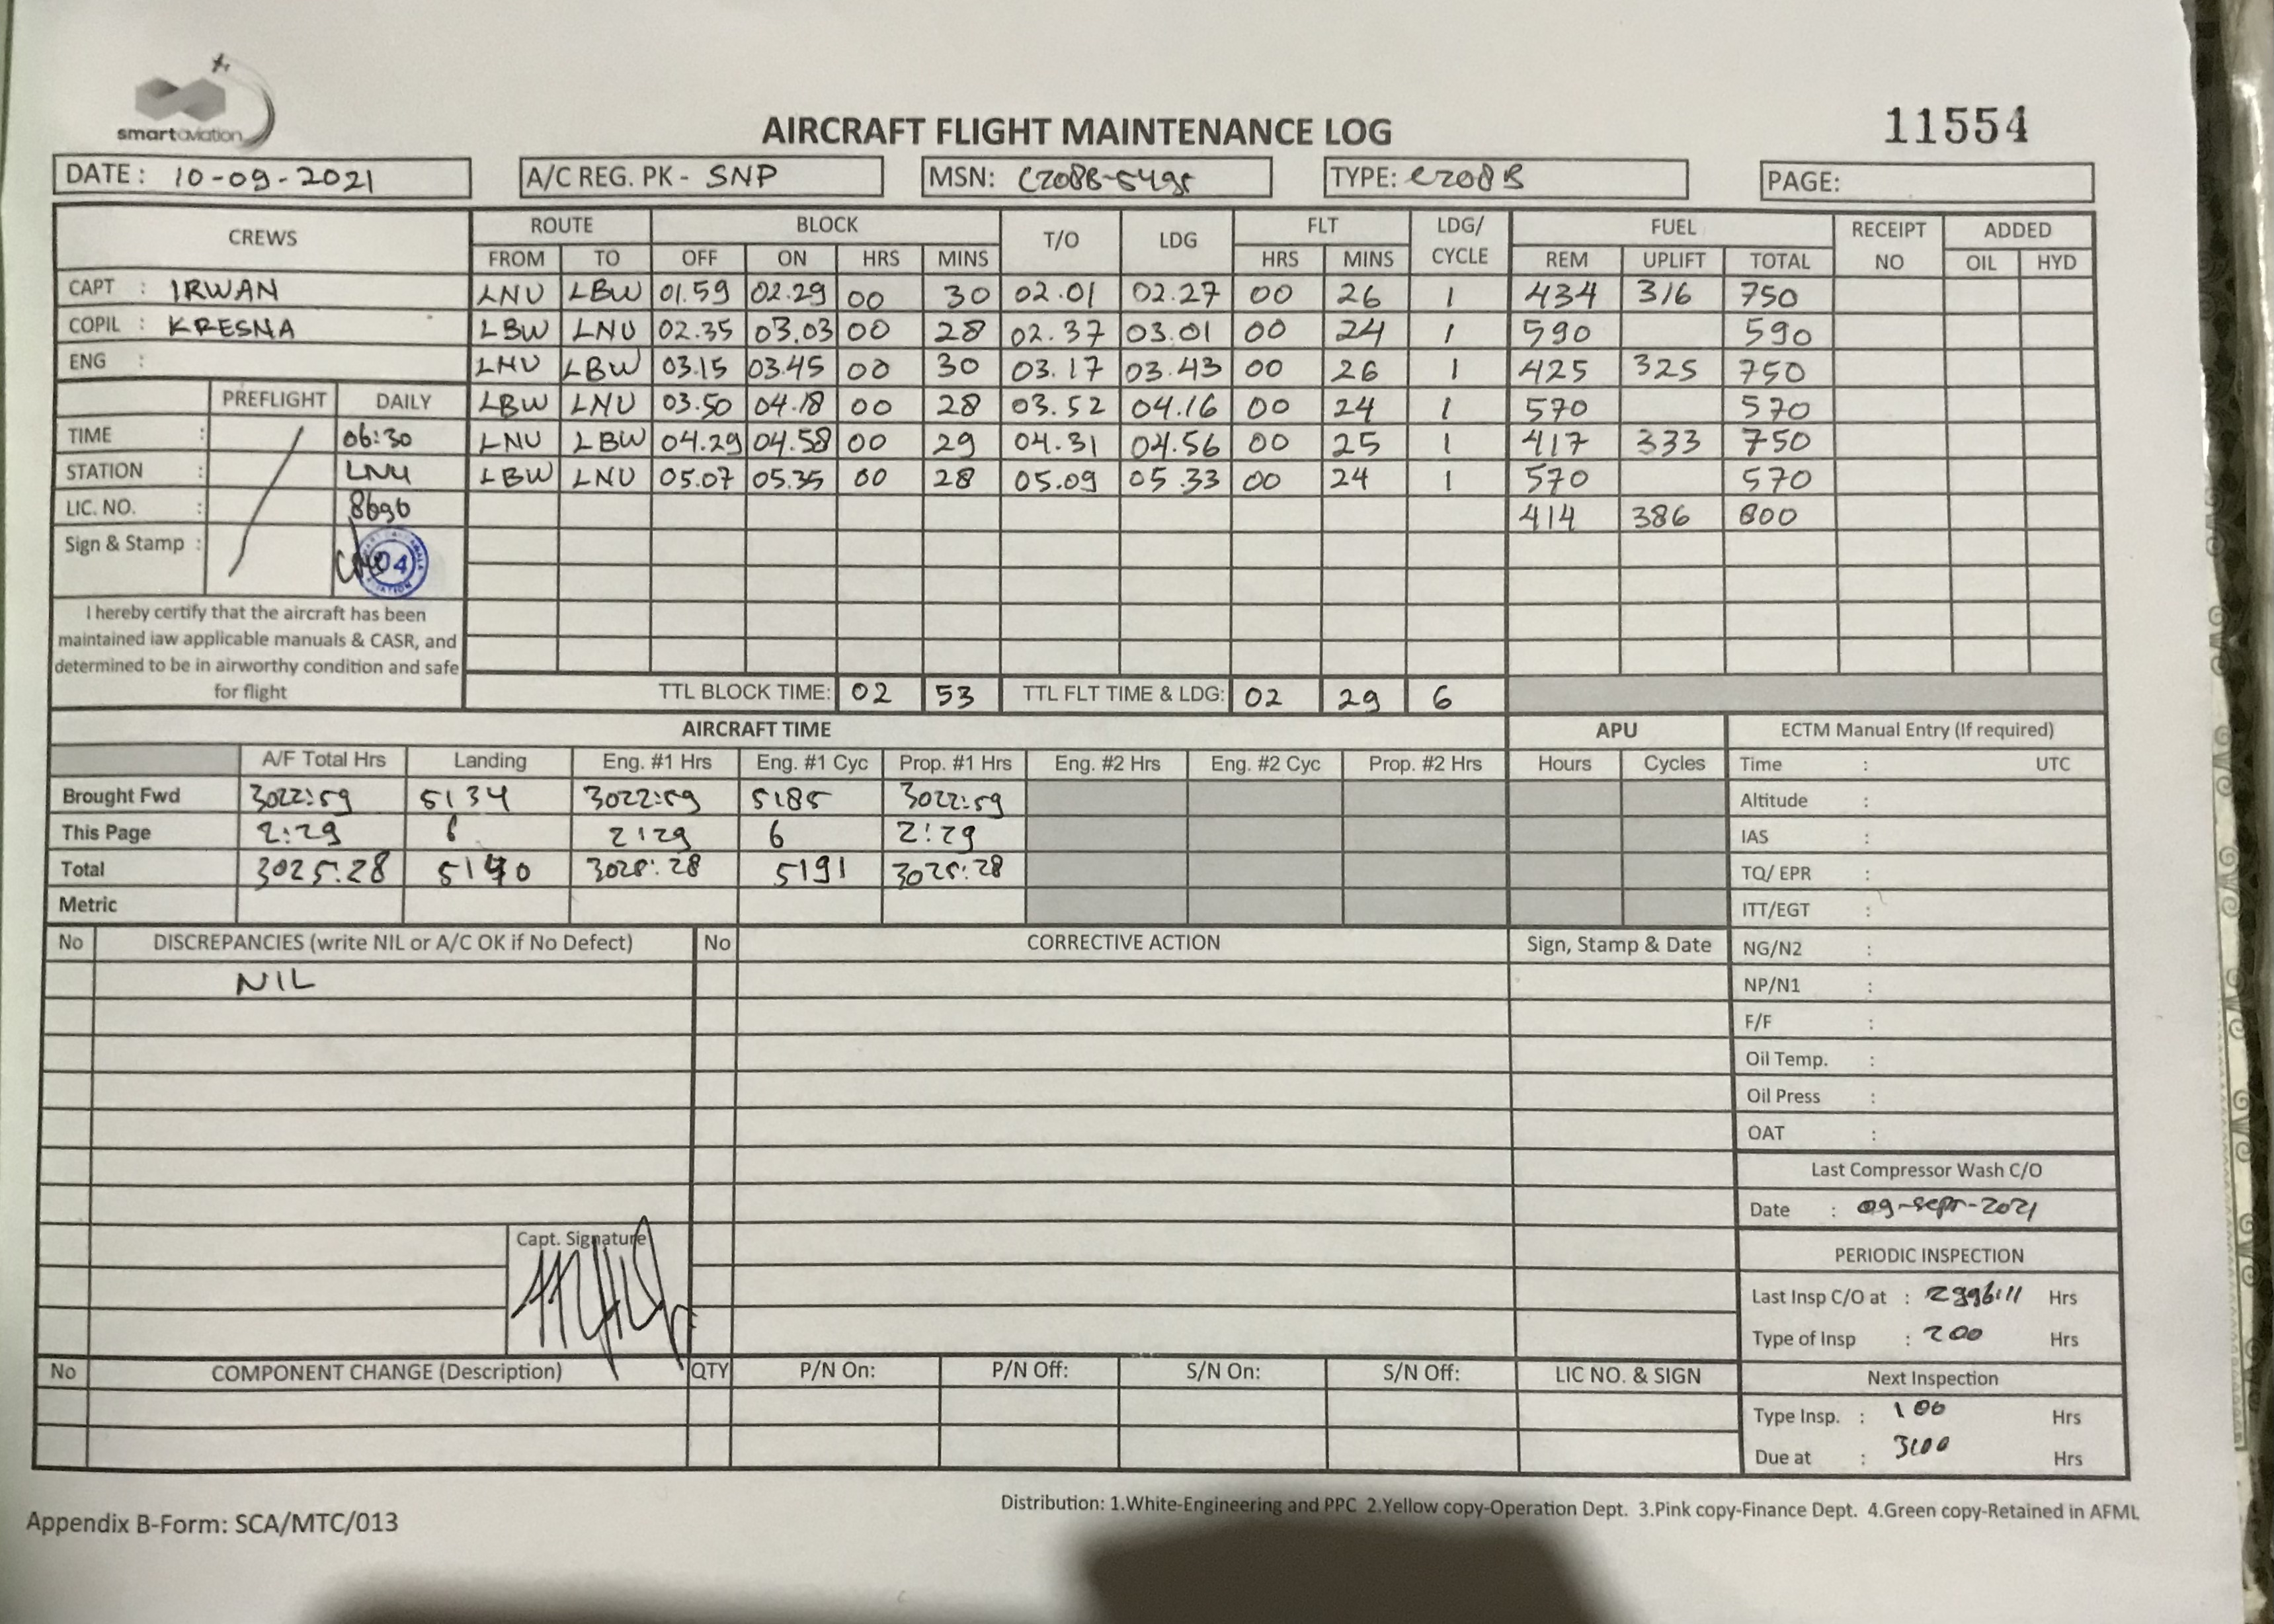 smartaviation
AIRCRAFT FLIGHT MAINTENANCE LOG
11554
DATE: 10-09-2021 A/C REG. PK - SNP MSN: C208B-5495 TYPE: C208B PAGE:
CREWS ROUTE BLOCK T/O LDG FLT LDG/ CYCLE FUEL RECEIPT NO ADDED
FROM TO OFF ON HRS MINS HRS MINS REM UPLIFT TOTAL OIL HYD
CAPT : IRWAN LNU LBW 01.59 02.29 00 30 02.01 02.27 00 26 1 434 316 750
COPIL : KRESNA LBW LNU 02.35 03.03 00 28 02.37 03.01 00 24 1 590 590
ENG : LNU LBW 03.15 03.45 00 30 03.17 03.43 00 26 1 425 325 750
PREFLIGHT DAILY LBW LNU 03.50 04.18 00 28 03.52 04.16 00 24 1 570 570
TIME : 06:30 LNU LBW 04.29 04.58 00 29 04.31 04.56 00 25 1 417 333 750
STATION : LNU LBW LNU 05.07 05.35 00 28 05.09 05.33 00 24 1 570 570
LIC. NO. : 8696 414 386 800
Sign & Stamp : 04
I hereby certify that the aircraft has been
maintained iaw applicable manuals & CASR, and
determined to be in airworthy condition and safe
for flight
TTL BLOCK TIME: 02 53 TTL FLT TIME & LDG: 02 29 6
AIRCRAFT TIME APU ECTM Manual Entry (If required)
A/F Total Hrs Landing Eng. #1 Hrs Eng. #1 Cyc Prop. #1 Hrs Eng. #2 Hrs Eng. #2 Cyc Prop. #2 Hrs Hours Cycles Time : UTC
Brought Fwd 3022:59 5134 3022:59 5185 3022:59 Altitude :
This Page 2:29 6 2:29 6 2:29 IAS :
Total 3025:28 5140 3025:28 5191 3025:28 TQ/ EPR :
Metric ITT/EGT :
No DISCREPANCIES (write NIL or A/C OK if No Defect) No CORRECTIVE ACTION Sign, Stamp & Date NG/N2 :
NIL NP/N1 :
F/F :
Oil Temp. :
Oil Press :
OAT :
Last Compressor Wash C/O
Date : 09-sept-2021
Capt. Signature
PERIODIC INSPECTION
Last Insp C/O at : 2996:11 Hrs
Type of Insp : 200 Hrs
No COMPONENT CHANGE (Description) QTY P/N On: P/N Off: S/N On: S/N Off: LIC NO. & SIGN Next Inspection
Type Insp. : 100 Hrs
Due at : 3100 Hrs
Appendix B-Form: SCA/MTC/013
Distribution: 1.White-Engineering and PPC 2.Yellow copy-Operation Dept. 3.Pink copy-Finance Dept. 4.Green copy-Retained in AFML